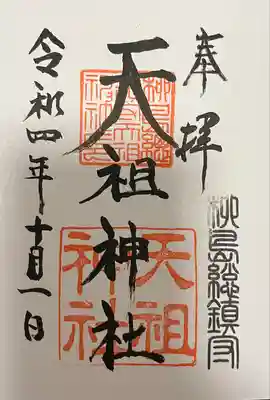 奉拝
柳島総鎮守
天祖神社
天祖
神社
令和四年十月一日